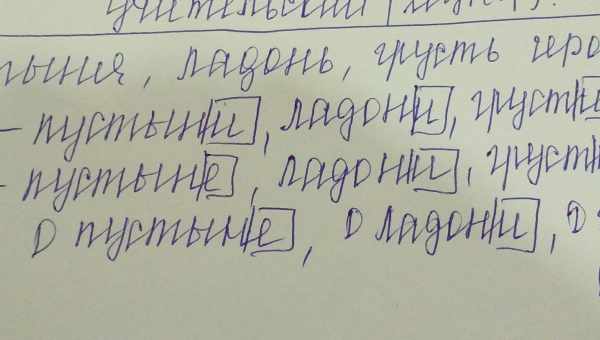 учительский
ладонь, грусть
- пустыни, ладони, грусти
- пустыне, ладони, груст
о пустыне, о ладони, о